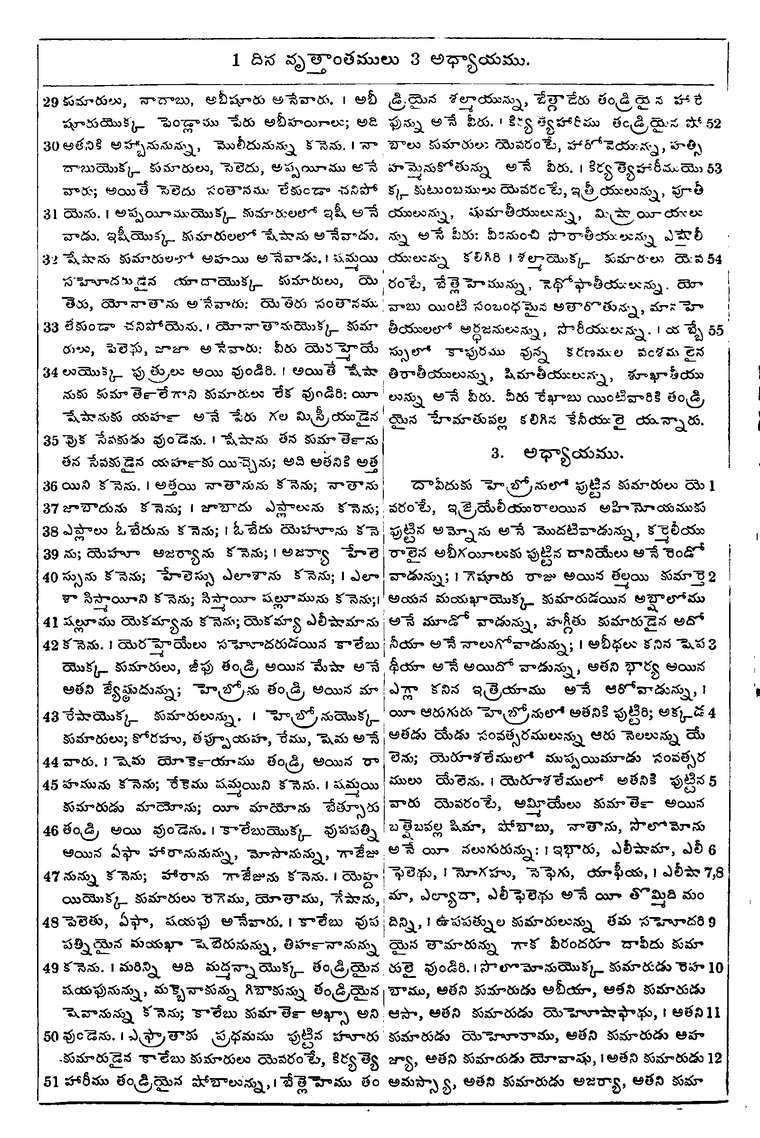 1 దిన వృత్తాంతములు 3 అధ్యాయము.
29 కుమారులు, నాదాబు, అబీషూరు అనేవారు. । అబీ
షూరుయొక్క పెండ్లాము పేరు అబీహయిలు; అది
30 అతనికి అహ్బానున్ను, మొలీదునున్ను కనెను. । నా
దాబుయొక్క కుమారులు, సెలెదు, అప్పయీము అనే
వారు; అయితే సెలెదు సంతానము లేకుండా చనిపో
31 యెను. । అప్పయీముయొక్క కుమారులలో ఇషీ అనే
వాడు. ఇషీయొక్క కుమారులలో షేషాను అనేవాడు.
32 షేషాను కుమారులలో అహయి అనేవాడు. । షమ్మయి
సహోదరుడైన యాదాయొక్క కుమారులు, యె
తెరు, యోనాతాను అనేవారు: యెతెరు సంతానము
33 లేకుండా చనిపోయెను. । యోనాతానుయొక్క కుమా
రులు, పెలెథు, జాజా అనేవారు: వీరు యెరహ్మెయే
34 లుయొక్క పుత్రులు అయి వుండిరి. । అయితే షేషా
నుకు కుమార్తెలేగాని కుమారులు లేక వుండిరి: యీ
షేషానుకు యహర్హా అనే పేరు గల మిస్రీయుడైన
35 వుక సేవకుడు వుండెను. । షేషాను తన కుమార్తెను
తన సేవకుడైన యహర్హాకు యిచ్చెను; అది అతనికి అత్త
36 యిని కనెను. । అత్తయి నాతానును కనెను; నాతాను
37 జాబాదును కనెను; । జాబాదు ఎఫ్లాలును కనెను;
38 ఎఫ్లాలు ఓబేదును కనెను; । ఓబేదు యెహూను కనె
39 ను; యెహూ అజర్యాను కనెను; । అజర్యా హేలె
40 స్సును కనెను; హేలెస్సు ఎలాశాను కనెను; । ఎలా
శా సిస్మాయీని కనెను; సిస్మాయీ షల్లూమును కనెను;।
41 షల్లూము యెకమ్యాను కనెను; యెకమ్యా ఎలీషామాను
42 కనెను. । యెరహ్మెయేలు సహోదరుడయిన కాలేబు
యొక్క కుమారులు, జీఫు తండ్రి అయిన మేషా అనే
అతని జ్యేష్ఠుడున్ను; హెబ్రోను తండ్రి అయిన మా
43 రేషాయొక్క కుమారులున్ను. । హెబ్రోనుయొక్క
కుమారులు; కోరహు, తప్పూయహ, రేము, షెమ అనే
44 వారు. । షెమ యోర్కెయాము తండ్రి అయిన రా
45 హమును కనెను; రేకెము షమ్మయిని కనెను. । షమ్మయి
కుమారుడు మాయోను; యీ మాయోను బేత్సూరు
46 తండ్రి అయి వుండెను. । కాలేబుయొక్క వుపపత్ని
అయిన ఏఫా హారానునున్ను, మోసానున్ను, గాజేజు
47 నున్ను కనెను; హారాను గాజేజును కనెను. । యెహ్ద
యియొక్క కుమారులు రెగెము, యోతాము, గేషాను,
48 పెలెతు, ఏఫా, షయఫు అనేవారు. । కాలేబు వుప
పత్నియైన మయఖా షెబెరునున్ను, తిర్హనానున్ను
49 కనెను. । మరిన్ని అది మద్మన్నాయొక్క తండ్రియైన
షయఫునున్ను, మక్బెనాకున్ను గిబాకున్ను తండ్రియైన
షెవానున్ను కనెను; కాలేబు కుమార్తె అఖ్సా అని
50 వుండెను. । ఎఫ్రాతాకు ప్రథమము పుట్టిన హూరు
కుమారుడైన కాలేబు కుమారులు యెవరంటే, కిర్యత్యె
51 హారీము తండ్రియైన షోబాలున్ను, । బేత్లెహెము తం
డ్రియైన శల్మాయున్ను, బేత్గాదేరు తండ్రియైన హారే
ఫున్ను అనే వీరు. । కిర్యత్యెహారీము తండ్రియైన షో 52
బాలు కుమారులు యెవరంటే, హారోవెయున్ను, హత్సి
హమ్మెనుకోతున్ను అనే వీరు. । కిర్యత్యెహారీముయొ 53
క్క కుటుంబములు యెవరంటే, ఇత్రీయులున్ను, పూతీ
యులున్ను, షుమాతీయులున్ను, మిష్రాయీయులు
న్ను అనే వీరు: వీరినుంచి సొరాతీయులున్ను ఎష్టాలీ
యులున్ను కలిగిరి । శల్మాయొక్క కుమారులు యెవ 54
రంటే, బేత్లెహెమున్ను, నెథోఫాతీయులున్ను. యో
వాబు యింటి సంబంధమైన అతారొతున్ను, మానహె
తీయులలో అర్ధజనులున్ను, సొరీయులున్ను. । యబ్బే 55
స్సులో కాపురము వున్న కరణముల వంశములైన
తిరాతీయులున్ను, షిమాతీయులున్ను, శూఖాతీయు
లున్ను అనే వీరు. వీరు రేఖాబు యింటివారికి తండ్రి
యైన హేమాతువల్ల కలిగిన కేనీయులై యున్నారు.
3. అధ్యాయము.
దావీదుకు హెబ్రోనులో పుట్టిన కుమారులు యె 1
వరంటే, ఇజ్రెయేలీయురాలయిన అహినోయముకు
పుట్టిన అమ్నోను అనే మొదటివాడున్ను, కర్మెలీయు
రాలైన అబీగయీలుకు పుట్టిన దానియేలు అనే రెండో
వాడున్ను; । గెషూరు రాజు అయిన తల్మయి కుమార్తె 2
అయిన మయఖాయొక్క కుమారుడయిన అబ్షాలోము
అనే మూడో వాడున్ను, హగ్గీతు కుమారుడైన అదో
నీయా అనే నాలుగోవాడున్ను; । అబీథలు కనిన షెఫ 3
థీయా అనే అయిదో వాడున్ను, అతని భార్య అయిన
ఎగ్లా కనిన ఇత్రెయాము అనే ఆరోవాడున్ను, ।
యీ ఆరుగురు హెబ్రోనులో అతనికి పుట్టిరి; అక్కడ 4
అతడు యేడు సంవత్సరములున్ను ఆరు నెలలున్ను యే
లెను; యెరూశలేములో ముప్పయిమూడు సంవత్సర
ములు యేలెను. । యెరూశలేములో అతనికి పుట్టిన 5
వారు యెవరంటే, అమ్మీయేలు కుమార్తె అయిన
బత్షెబవల్ల షిమా, షోబాబు, నాతాను, సొలొమోను
అనే యీ నలుగురున్ను: । ఇభారు, ఎలీషామా, ఎలీ 6
ఫెలెథు, । నోగహు, నెఫెగు, యాఫీయ, । ఎలీషా 7,8
మా, ఎల్యాదా, ఎలీఫెలెథు అనే యీ తొమ్మిది మం
దిన్ని, । ఉపపత్నుల కుమారులున్ను తమ సహోదరి 9
యైన తామారున్ను గాక వీరందరూ దావీదు కుమా
రులై వుండిరి. । సొలొమోనుయొక్క కుమారుడు రెహ 10
బాము, అతని కుమారుడు అబీయా, అతని కుమారుడు
ఆసా, అతని కుమారుడు యెహోషాఫాథు, । అతని 11
కుమారుడు యెహోరాము, అతని కుమారుడు అహ
జ్యా, అతని కుమారుడు యోవాషు, । అతని కుమారుడు 12
అమస్స్యా, అతని కుమారుడు అజర్యా, అతని కుమా